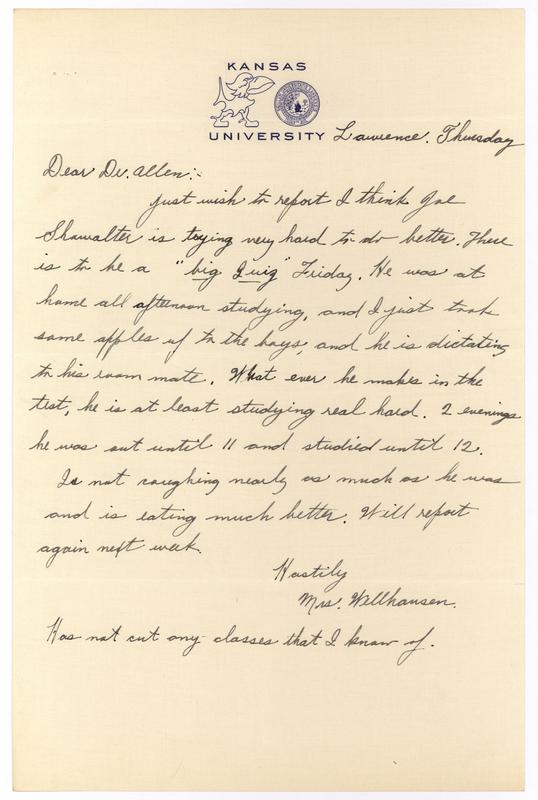 KANSAS
UNIVERSITY
Lawrence. Thursday
Dear Dr. Allen:-
Just wish to report I think Joe
Shawalter is trying very hard to do better. There
is to be a "big Quiz" Friday. He was at
home all afternoon studying, and I just took
some apples up to the boys, and he is dictating
to his room mate. What ever he makes in the
test, he is at least studying real hard. 2 evenings
he was out until 11 and studied until 12.
Is not coughing nearly as much as he was
and is eating much better. Will report
again next week.
Hastily
Mrs. Wellhausen.
Has not cut any classes that I know of.